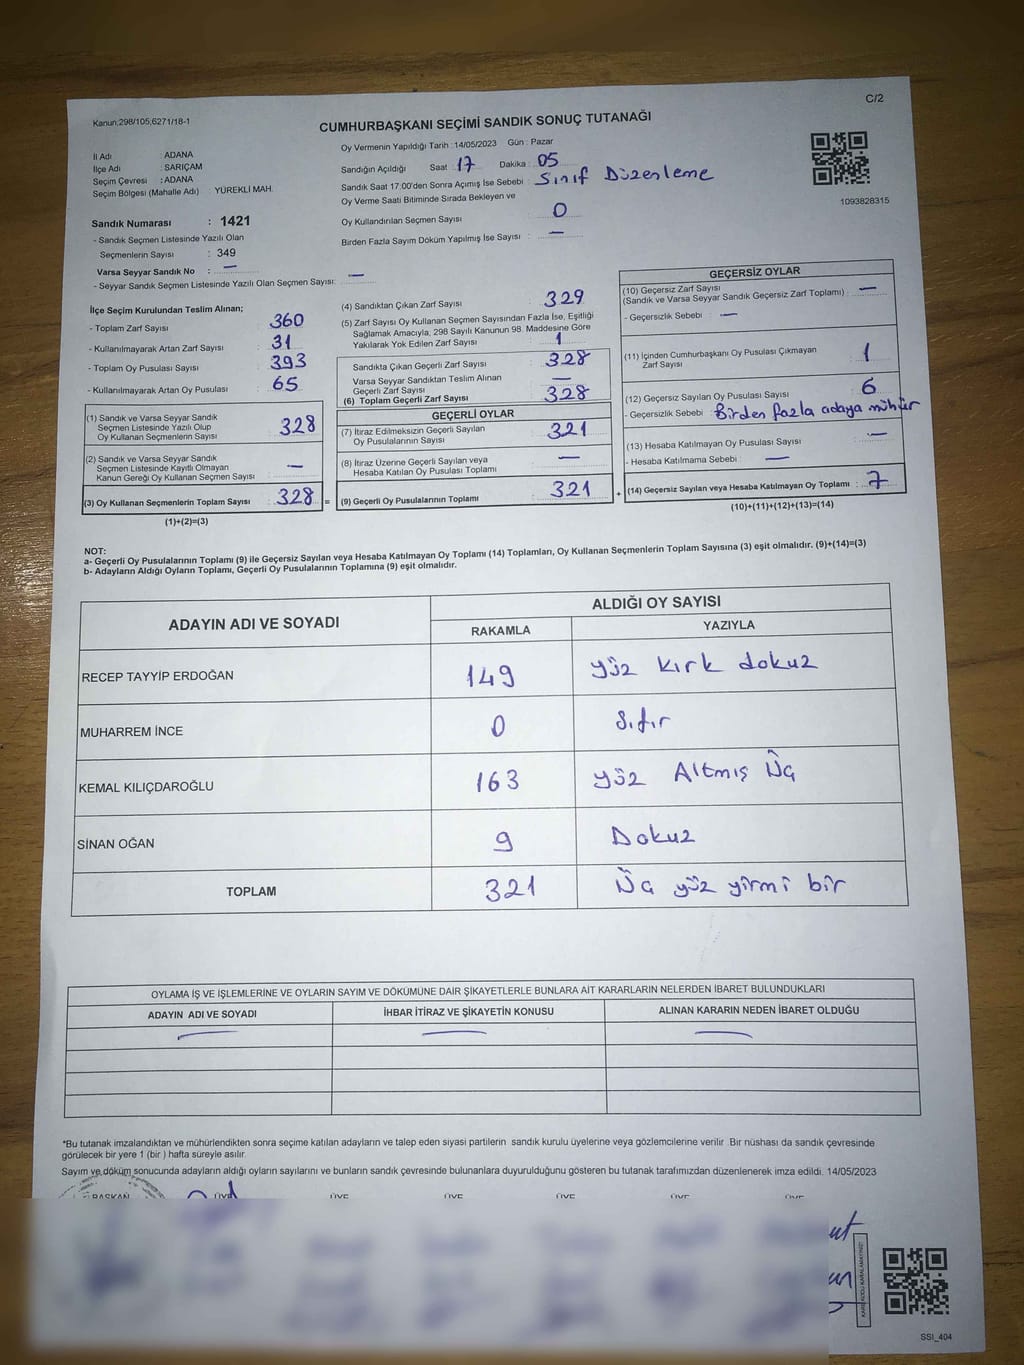 C/2
Kanun:298/105,6271/18-1
CUMHURBAŞKANI SEÇİMİ SANDIK SONUÇ TUTANAĞI
İl Adı : ADANA
İlçe Adı : SARIÇAM
Seçim Çevresi : ADANA
Seçim Bölgesi (Mahalle Adı) YÜREKLİ MAH.
Oy Vermenin Yapıldığı Tarih : 14/05/2023 Gün : Pazar
Sandığın Açıldığı Saat : 17 Dakika : 05
Sandık Saat 17:00'den Sonra Açımış İse Sebebi : Sınıf Düzenleme
Oy Verme Saati Bitiminde Sırada Bekleyen ve
Oy Kullandırılan Seçmen Sayısı 0
Birden Fazla Sayım Döküm Yapılmış İse Sayısı : —
1093828315
Sandık Numarası : 1421
- Sandık Seçmen Listesinde Yazılı Olan
Seçmenlerin Sayısı : 349
Varsa Seyyar Sandık No : —
- Seyyar Sandık Seçmen Listesinde Yazılı Olan Seçmen Sayısı: —
İlçe Seçim Kurulundan Teslim Alınan;
- Toplam Zarf Sayısı : 360
- Kullanılmayarak Artan Zarf Sayısı : 31
- Toplam Oy Pusulası Sayısı : 393
- Kullanılmayarak Artan Oy Pusulası : 65
(1) Sandık ve Varsa Seyyar Sandık
Seçmen Listesinde Yazılı Olup
Oy Kullanan Seçmenlerin Sayısı : 328
(2) Sandık ve Varsa Seyyar Sandık
Seçmen Listesinde Kayıtlı Olmayan
Kanun Gereği Oy Kullanan Seçmen Sayısı : —
(3) Oy Kullanan Seçmenlerin Toplam Sayısı : 328 =
(1)+(2)=(3)
(4) Sandıktan Çıkan Zarf Sayısı : 329
(5) Zarf Sayısı Oy Kullanan Seçmen Sayısından Fazla İse, Eşitliği
Sağlamak Amacıyla, 298 Sayılı Kanunun 98. Maddesine Göre
Yakılarak Yok Edilen Zarf Sayısı : 1
Sandıkta Çıkan Geçerli Zarf Sayısı : 328
Varsa Seyyar Sandıktan Teslim Alınan
Geçerli Zarf Sayısı : —
(6) Toplam Geçerli Zarf Sayısı : 328
GEÇERLİ OYLAR
(7) İtiraz Edilmeksizin Geçerli Sayılan
Oy Pusulalarının Sayısı : 321
(8) İtiraz Üzerine Geçerli Sayılan veya
Hesaba Katılan Oy Pusulası Toplamı : —
(9) Geçerli Oy Pusulalarının Toplamı : 321 +
GEÇERSİZ OYLAR
(10) Geçersiz Zarf Sayısı
(Sandık ve Varsa Seyyar Sandık Geçersiz Zarf Toplamı) : —
- Geçersizlik Sebebi : —
(11) İçinden Cumhurbaşkanı Oy Pusulası Çıkmayan
Zarf Sayısı : 1
(12) Geçersiz Sayılan Oy Pusulası Sayısı : 6
- Geçersizlik Sebebi : Birden fazla adaya mühür
(13) Hesaba Katılmayan Oy Pusulası Sayısı : —
- Hesaba Katılmama Sebebi : —
(14) Geçersiz Sayılan veya Hesaba Katılmayan Oy Toplamı : 7
(10)+(11)+(12)+(13)=(14)
NOT:
a- Geçerli Oy Pusulalarının Toplamı (9) ile Geçersiz Sayılan veya Hesaba Katılmayan Oy Toplamı (14) Toplamları, Oy Kullanan Seçmenlerin Toplam Sayısına (3) eşit olmalıdır. (9)+(14)=(3)
b- Adayların Aldığı Oyların Toplamı, Geçerli Oy Pusulalarının Toplamına (9) eşit olmalıdır.
ADAYIN ADI VE SOYADI ALDIĞI OY SAYISI
RAKAMLA YAZIYLA
RECEP TAYYİP ERDOĞAN 149 yüz kırk dokuz
MUHARREM İNCE 0 Sıfır
KEMAL KILIÇDAROĞLU 163 yüz Altmış Üç
SİNAN OĞAN 9 Dokuz
TOPLAM 321 Üç yüz yirmi bir
OYLAMA İŞ VE İŞLEMLERİNE VE OYLARIN SAYIM VE DÖKÜMÜNE DAİR ŞİKAYETLERLE BUNLARA AİT KARARLARIN NELERDEN İBARET BULUNDUKLARI
ADAYIN ADI VE SOYADI İHBAR İTİRAZ VE ŞİKAYETİN KONUSU ALINAN KARARIN NEDEN İBARET OLDUĞU
— — —
*Bu tutanak imzalandıktan ve mühürlendikten sonra seçime katılan adayların ve talep eden siyasi partilerin sandık kurulu üyelerine veya gözlemcilerine verilir .Bir nüshası da sandık çevresinde
görülecek bir yere 1 (bir ) hafta süreyle asılır.
Sayım ve döküm sonucunda adayların aldığı oyların sayılarını ve bunların sandık çevresinde bulunanlara duyurulduğunu gösteren bu tutanak tarafımızdan düzenlenerek imza edildi. 14/05/2023
BAŞKAN ÜYE ÜYE ÜYE ÜYE ÜYE ÜYE
KARE KODU KARALAMAYINIZ!
SSI_404